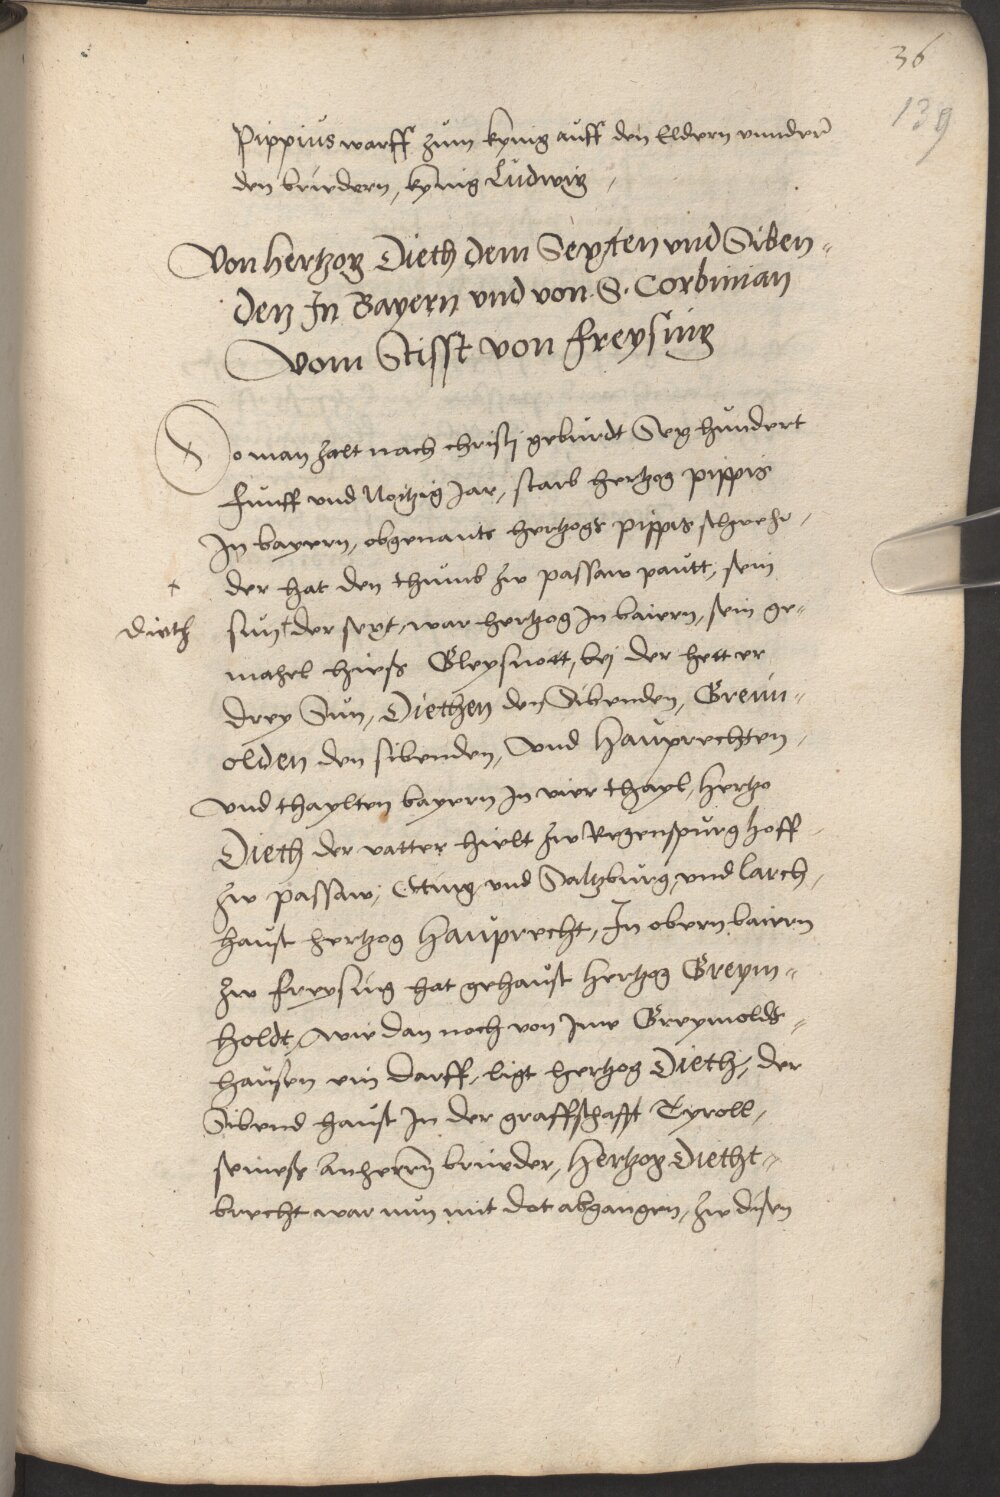 36
139
Pippius warff zum kynig auff den Eldern vnnder
den brüedern, kynig Ludwig,
Von hertzog Dieth dem Sexten vnd Siben„
den In Bayern vnd von S. Corbinian
Vom Stifft von freysing
Do man zalt nach christi gebürdt Sex hundert
fünff vnd Neitzig Jar, starb hertzog pippis
In bayern, obgenants hertzogs pippis schweher,
der hat den thumb zw passaw pautt, sein
+
dieth
sun + der sext, war hertzog In bairn, sein ge„
mahel hiess Gleysnott, bei der hett er
drey Sün, Diethen den Sibenden, Greim„
olden den sibenden, vnd Hauprechten,
vnd thaylten bayern In vier thayl, hertzo
Dieth der vatter hielt zw Regenspurg hoff,
zw passaw, Etting vnd Saltzburg, vnd larch,
haust hertzog Hauprecht, In obern bairn
zw freysing hat gehaust hertzog Greym„
holdt, wie dan noch von Jme Greymolds„
hausen ein darff, ligt hertzog Dieth, der
Sibend haust In der graffschafft Tyroll,
seiness Anherrn brüeder, Hertzog Dietht„
brecht war nun mit dot abgangen, zw disen